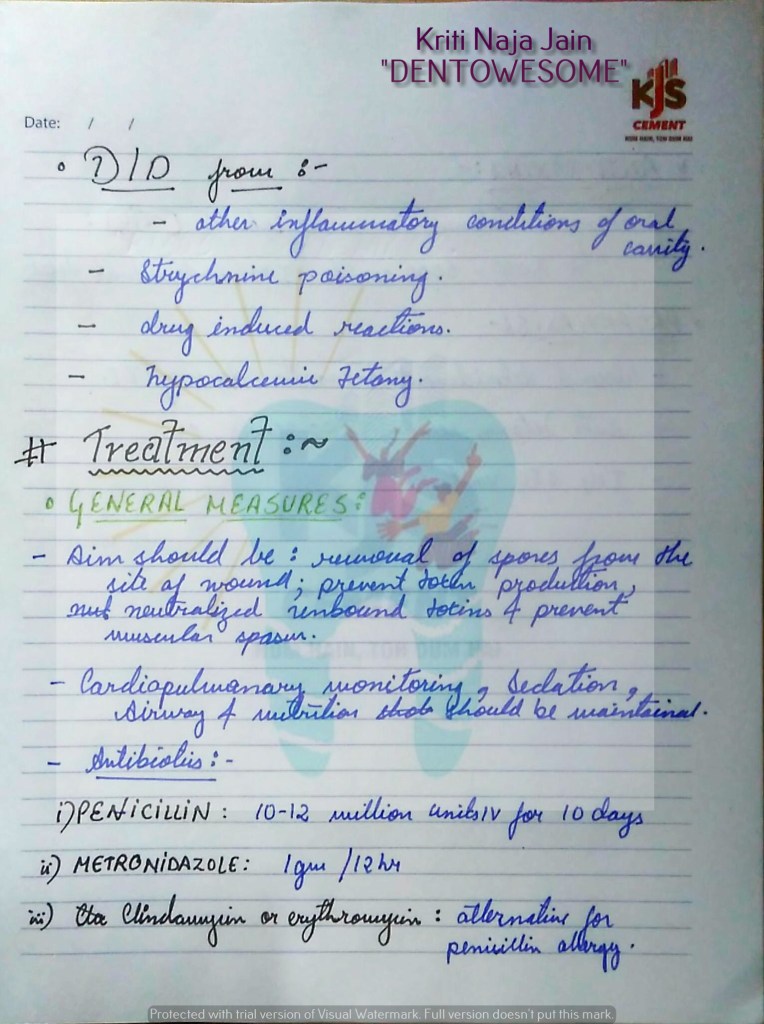 Kriti Naja Jain
"DENTOWESOME"
KJS
CEMENT
Date: / /
D/D from :-
- other inflammatory conditions of oral
cavity.
- Strychnine poisoning.
- drug induced reactions.
- hypocalcemic Tetany.
# Treatment :~
GENERAL MEASURES:
- Aim should be : removal of spores from the
site of wound; prevent toxin production,
neutralized unbound toxins & prevent
muscular spasm.
- Cardiopulmonary monitoring, Sedation,
Airway & nutrition should be maintained.
- Antibiotics :-
i) PENICILLIN : 10-12 million units IV for 10 days
ii) METRONIDAZOLE: 1gm /12hr
iii) Clindamycin or erythromycin : alternative for
penicillin allergy.
Protected with trial version of Visual Watermark. Full version doesn't put this mark.